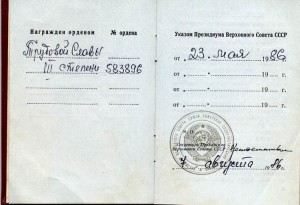 Награжден орденом № ордена
Трудовой Славы
III степени 583896
Указом Президиума Верховного Совета СССР
от „23“ мая 1986
от „ “ 19 г.
от „ “ 19 г.
от „ “ 19 г.
Секретарь Президиума
Верховного Совета СССР
августа 86